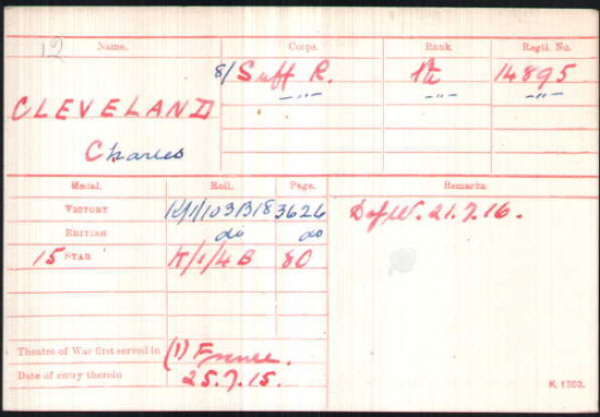 12
Name. Corps. Rank. Regtl. No.
8/ Suff R. Pte 14895
—"— —"— —"—
CLEVELAND
Charles
Medal. Roll. Page. Remarks.
VICTORY K/1/103B18 3626 D of W. 21.7.16.
BRITISH do do
15 STAR K/1/4B 80
Theatre of War first served in (1) France.
Date of entry therein 25.7.15.
K. 1380.